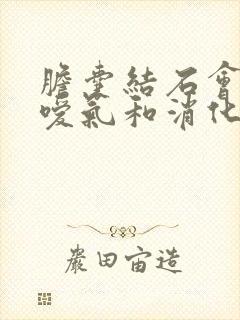 膽囊結石會
噯氣和消化
嚴田宙造